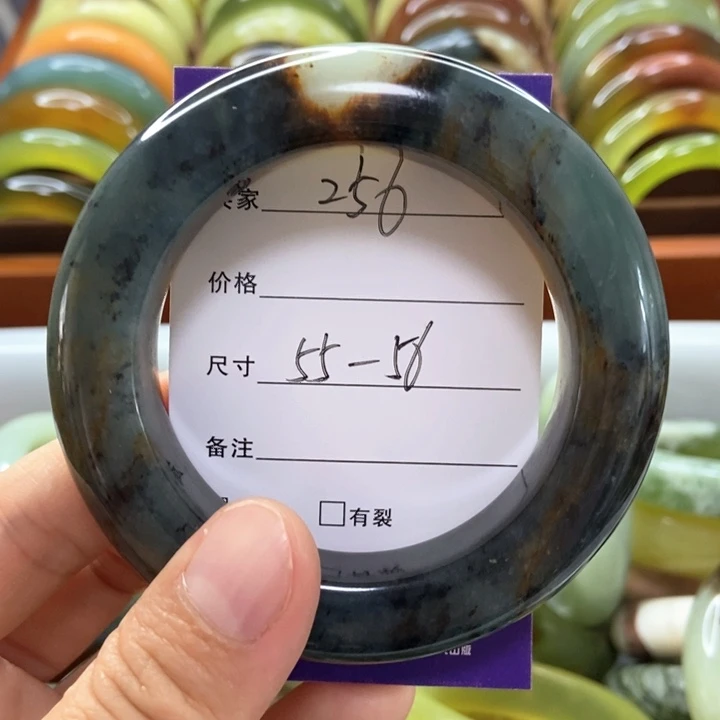 家 256
价格
尺寸 55-56
备注
有裂